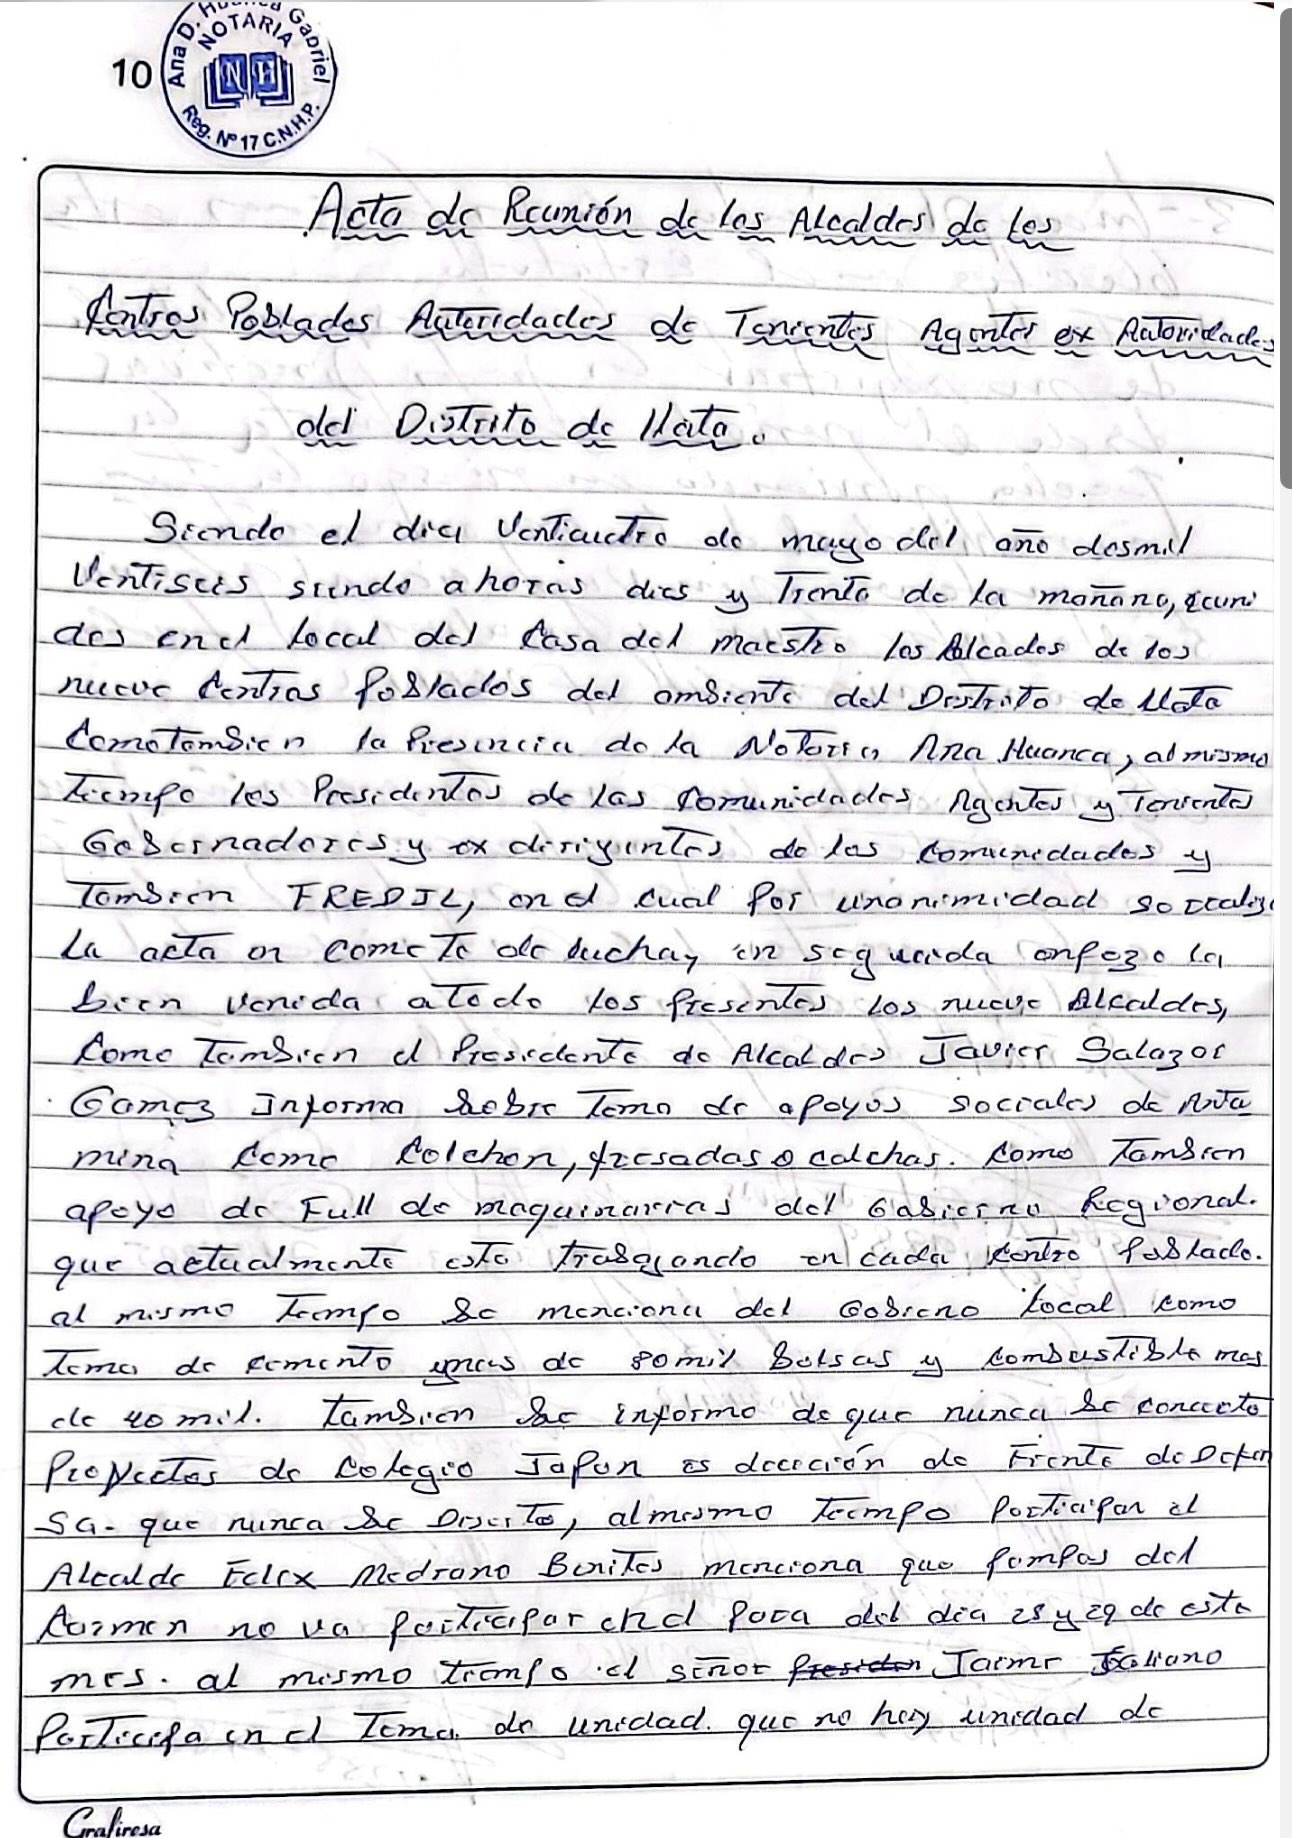 10
Ana D. Huanca Gabriel
NOTARIA
NH
Reg. Nº 17 C.N.H.P.
Acta de Reunión de los Alcaldes de los
Centros Poblados Autoridades de Tenientes Agentes ex Autoridades
del Distrito de Llata.
Siendo el dia Venticuatro de mayo del año dosmil
Ventiseis siendo a horas dies y Trenta de la mañana, reuni
dos en el local del Casa del maestro los Alcades de los
nueve Centros Poblados del ambiente del Distrito de Llata
Comotambien la Presencia de la Notoria Ana Huanca, al mismo
Tiempo los Presidentes de las Comunidades Agentes y Tenientes
Gobernadores y ex dirigentes de las comunidades y
Tambien FREDIL, en el cual por unanimidad se realiza
La acta en comete de lucha, en seguida enpezo la
bien venida a todo los presentes los nueve Alcaldes,
Como Tambien el Presidente de Alcaldes Javier Salazar
Gamez Informa Sobre Tema de apoyos sociales de Anta
mina como Colchon, fresadas o colchas. Como Tambien
apoyo de Full de maquinarias del Gobierno Regional.
que actualmente esta trabajando en cada Centro Poblado.
al mismo Tiempo Se menciona del Gobierno Local como
Tema de cemento mas de 80 mil Bolsas y Combustible mas
de 40 mil. Tambien Se informo de que nunca Se concreto
Proyectos de Colegio Japon es decición de Frente de Defen
sa. que nunca Se Diserto, al mismo Tiempo Participar el
Alcalde Felix Medrano Benites menciona que pampas del
Carmen no va participar en el para del dia 28 y 29 de este
mes. al mismo tiempo el señor Jaime
Participa en el Tema de unidad. que no hay unidad de
Grafiresa